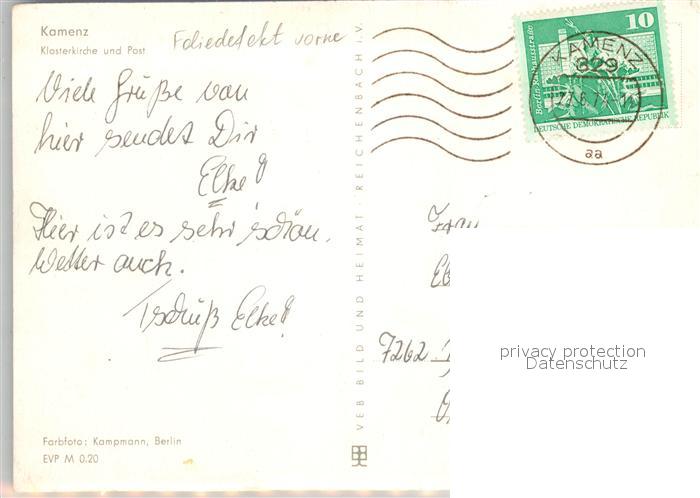 Kamenz
Klosterkirche und Post
Foliedefekt vorne
Viele Grüße von
hier sendet Dir
Elke!
Hier ist es sehr schön.
Wetter auch.
Tschüß Elke!
Farbfoto: Kampmann, Berlin
EVP M 0.20
VEB BILD UND HEIMAT · REICHENBACH i. V.
10
Berlin, Rathausstraße
DEUTSCHE DEMOKRATISCHE REPUBLIK
KAMENZ
829
aa
Frau
7262
privacy protection
Datenschutz